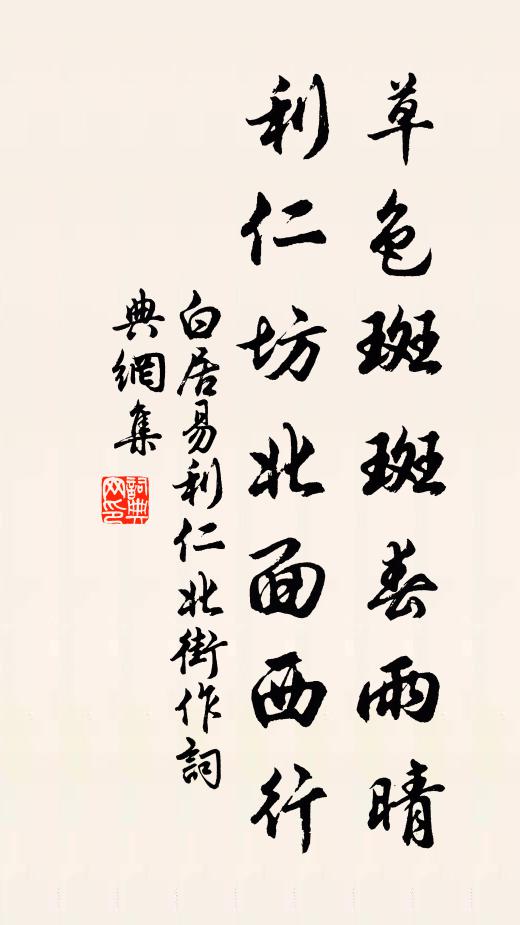 草色斑斑春雨晴
利仁坊北面西行
白居易利仁北街作詞
典網集
詞典網印